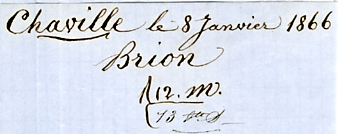 Chaville le 8 Janvier 1866
Brion
12. m.